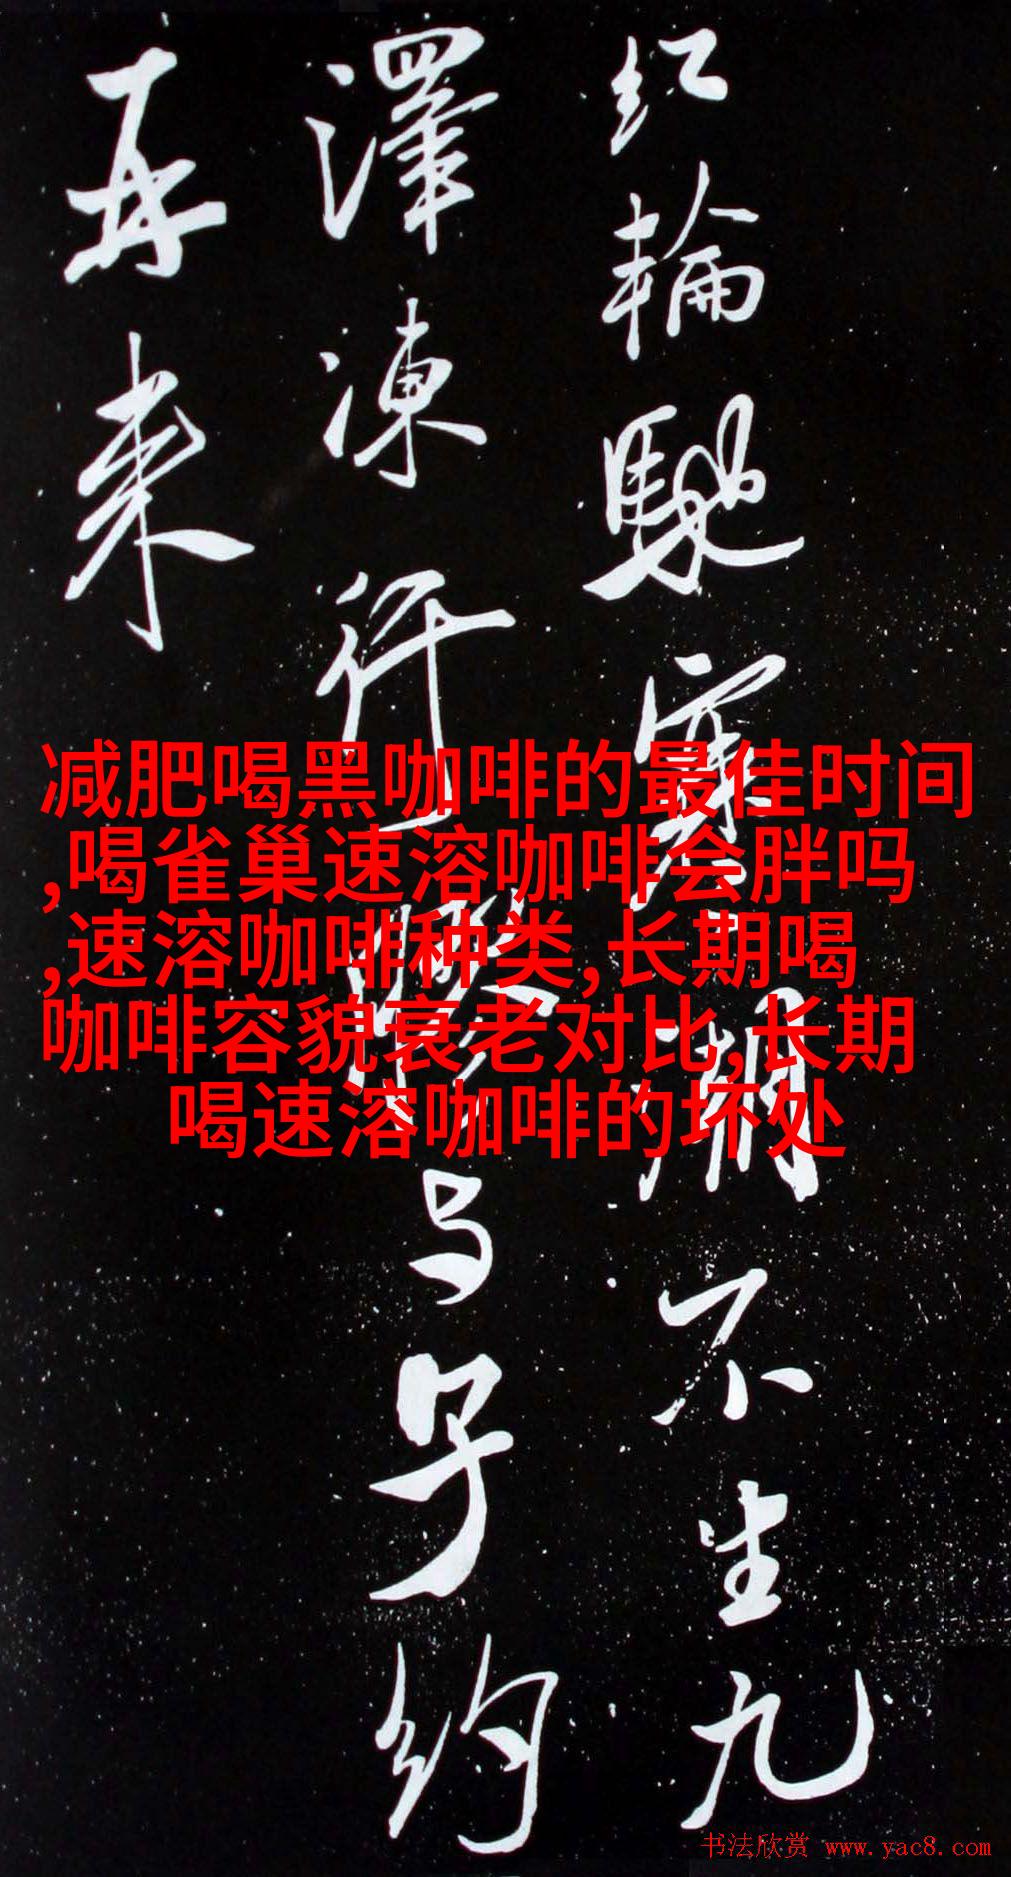 红輪馳寒不生九
澤凍行与子约
再来
减肥喝黑咖啡的最佳时间
,喝雀巢速溶咖啡会胖吗
,速溶咖啡种类,长期喝
咖啡容貌衰老对比,长期
喝速溶咖啡的坏处
书法欣赏 www.yac8.com